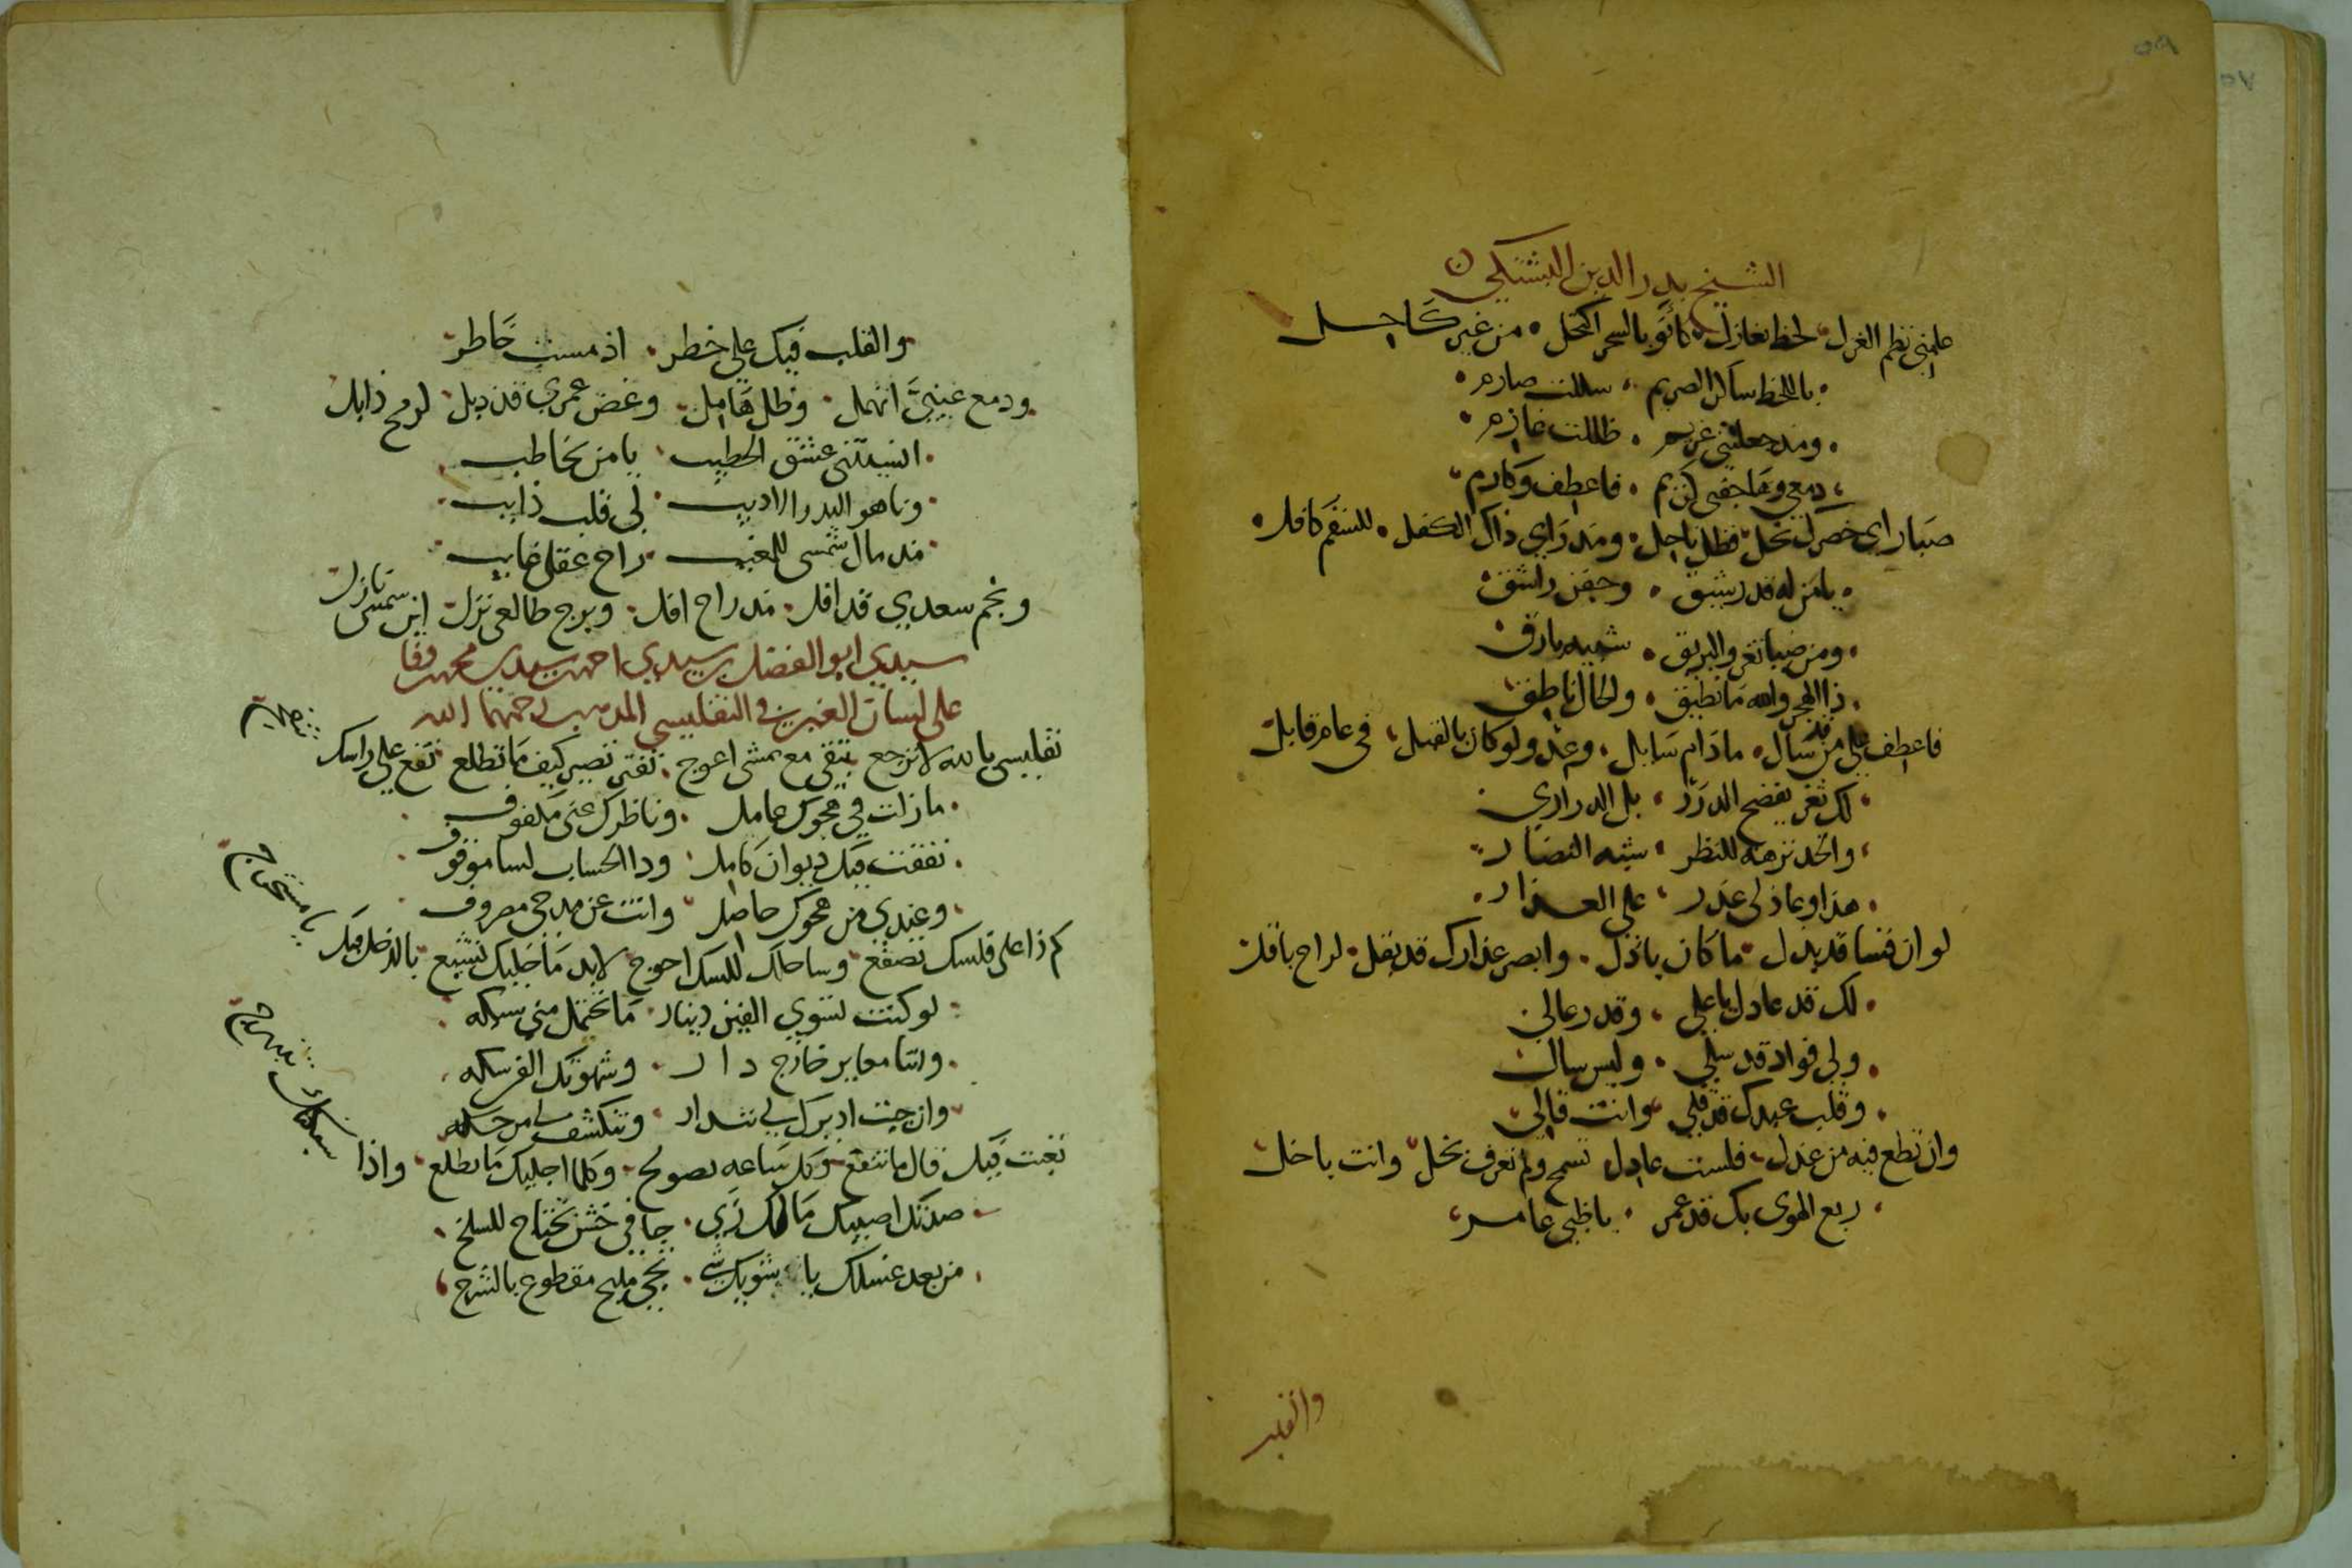 الشيخ بدر الدين البشتكي
علمني نظم الغزل لحظ يغازل كانو بالسحر اكتحل من غير كاحل
باللحظ ساكن الصريم سللت صارم
ومذ جعلتني غريم ظللت غازم
دمعي وما جفني كريم فاعطف وكارم
صبا راى خصرك نحل فظل ناحل ومذ راي ذاك الكفل للسقم كافل
يا من له قد رشيق وجفن راشق
ومن ضيا ثغرو البريق شبيه بارق
ذا الهجر والله ما نطيق والحال ناطق
فاعطف على من قد سال مادام سايل وعد ولو كان بالقبل في عام قابل
لك ثغر يفضح الدرر بل الدراري
والخد نزهه للنظر شبه النضار
هذا وعاذلي عذر على العذار
لو ان نفسا قد بدل ما كان باذل وابصر عذارك قد بقل لراح باقل
لك قد عادل يا علي وقدر عالي
ولي فواد قد سلي وليس سالي
وقلب عبدك قد قلي وانت قالي
وان تطع فيه من عذل فلست عادل تسمح ولم تعرف بخل وانت باخل
ربع الهوى بك قد عمر يا ظبي عامر
والقلب
والقلب فيك على خطر اذ مست خاطر
ودمع عينيَّ انهمل وظل هامل وغصن عمري قد دبل لرمح ذابل
انسيتني عشق الخطيب يا من تخاطب
وناهو البدر الاديب لي قلب ذايب
مذ مال شمسي للمغيب راح عقلي غايب
ونجم سعدي قد افل مذ راح افل وبرج طالعي نزل اين شمس نازل
سيدي ابو الفضل بن سيدي احمد بن سيدي محمد وفا
على لسان الغير في التفليسي المدني رحمهما الله
تفليسي بالله لا ترجع تبقى مع تمشي اعوج تفتر تصير كيف ما تطلع تقع على راسك
مازلت في هجوك عامل وناظرك عني مكفوف
نفقت فيك ديوان كامل ودا الحساب لسا موقوف
وعندي من هجوك حاصل وانت عن مدحي مصروف
كم ذا على فلسك تصفع وساحلك للسك احوج لابد ما خليك تشبع بالدخل فيك يا مستخراج
لو كنت تسوي الفين دينار ما تحتمل مني سكه
وانتا معاير خارج دار وشهوتك الفركه
وان جيت ادبرك لي تندار وتنكشف لي من
تعبت فيك قال ما تنفع وكل ساعه تصولج وكلما اجليك ما تطلع واذا سبكتك
صدتك اصيبك مالك زي جافي خشن تحتاج للسلخ
من بعد غسلك يا شويك شي تجي مليح مقطوع بالشرخ